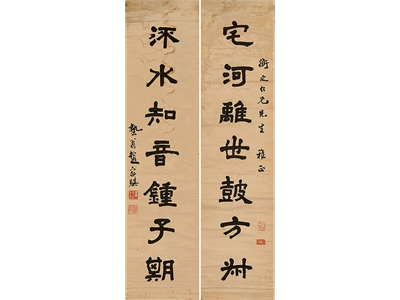 衡之仁兄先生 雅正
宅河離世鼓方叔
流水知音鍾子期